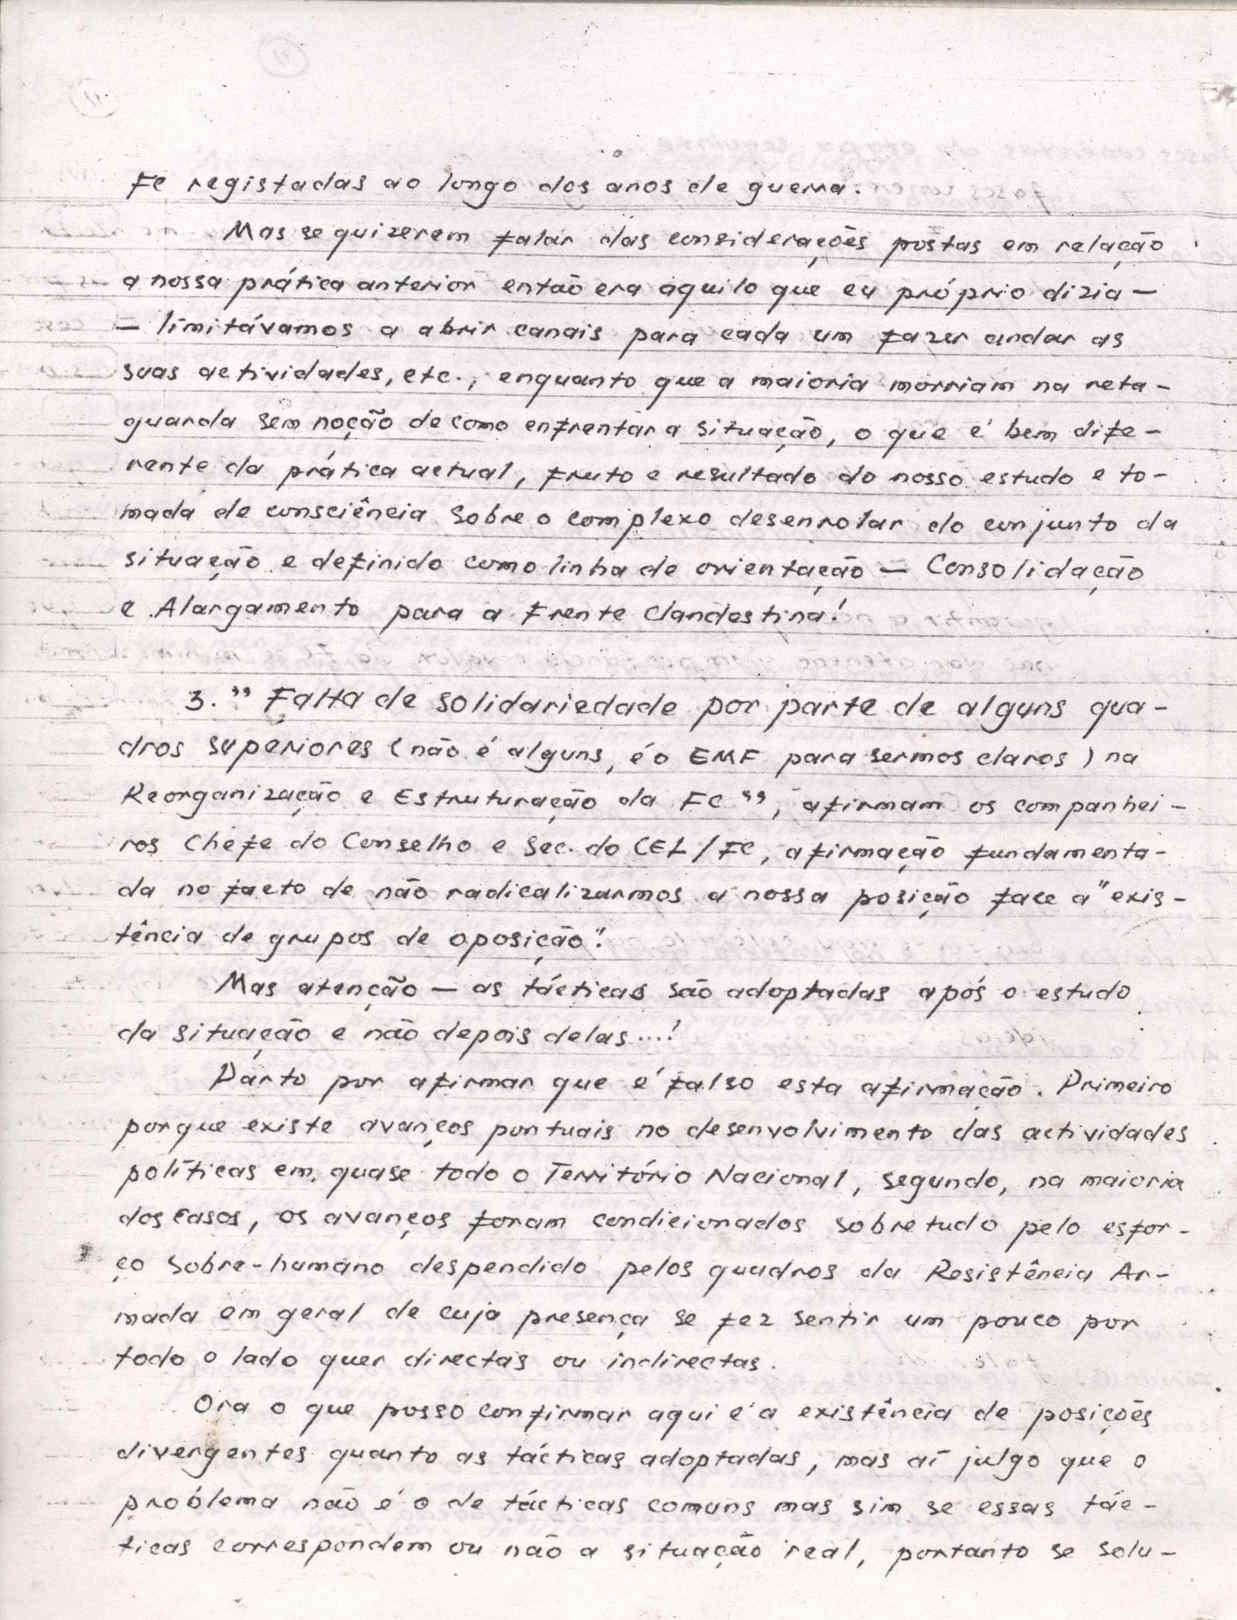 FC registadas ao longo dos anos de guerra.
Mas se quizerem falar das considerações postas em relação
a nossa prática anterior então era aquilo que eu próprio dizia —
— limitávamos a abrir canais para cada um fazer andar as
suas actividades, etc., enquanto que a maioria morriam na reta-
guarda sem noção de como enfrentar a situação, o que é bem dife-
rente da prática actual, fruto e resultado do nosso estudo e to-
mada de consciência sobre o complexo desenrolar do conjunto da
situação e definido como linha de orientação — Consolidação
e Alargamento para a Frente Clandestina!
3. " Falta de solidariedade por parte de alguns qua-
dros superiores (não é alguns, é o EMF para sermos claros) na
Reorganização e Estruturação da FC ", afirmam os companhei-
ros Chefe do Conselho e Sec. do CEL/FC, afirmação fundamenta-
da no facto de não radicalizarmos a nossa posição face a "exis-
tência de grupos de oposição".
Mas atenção — as tácticas são adoptadas após o estudo
da situação e não depois delas....!
Parto por afirmar que é falso esta afirmação. Primeiro
porque existe avanços pontuais no desenvolvimento das actividades
políticas em quase todo o Território Nacional, segundo, na maioria
dos casos, os avanços foram condicionados sobretudo pelo esfor-
ço sobre-humano despendido pelos quadros da Resistência Ar-
mada em geral de cuja presença se fez sentir um pouco por
todo o lado quer directas ou indirectas.
Ora o que posso confirmar aqui é a existência de posições
divergentes quanto as tácticas adoptadas, mas aí julgo que o
problema não é o de tácticas comuns mas sim se essas tác-
ticas correspondem ou não a situação real, portanto se solu-